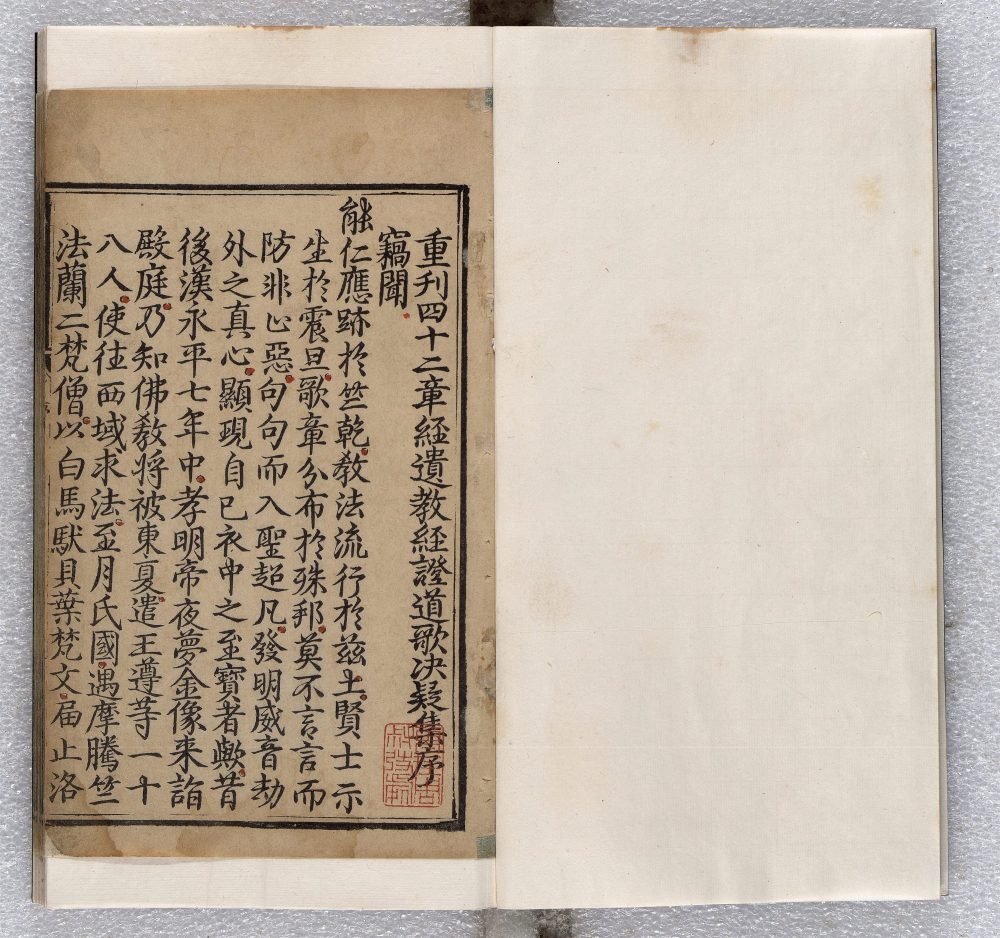 重刊四十二章經遺教經證道歌決疑集序
竊聞
能仁應跡於竺乾教法流行於玆土賢士示
生於震旦歌章分布於殊邦莫不言言而
防非止惡句句而入聖超凡發明威音劫
外之真心顯現自已衣中之至寶者歟昔
後漢永平七年中孝明帝夜夢金像来詣
殿庭乃知佛教將被東夏遣王遵等一十
八人使往西域求法至月氏國遇摩騰竺
法蘭二梵僧以白馬馱貝葉梵文届止洛